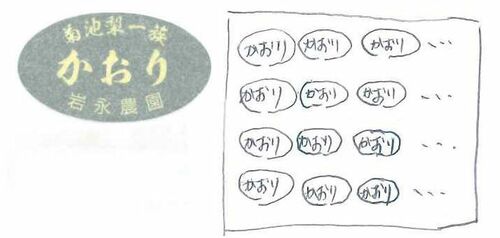 菊池梨一族
かおり
岩永農園
かおり かおり かおり ...
かおり かおり かおり ...
かおり かおり かおり ...
かおり かおり かおり ...